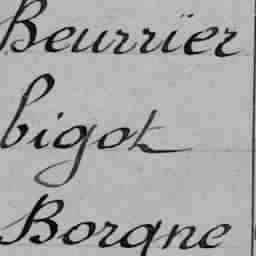 Beurrier
bigot
Borgne